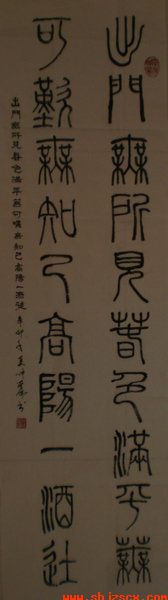 出門無所見春色滿平蕪
可歎無知己高陽一酒徒
出門無所見春色滿平蕪可嘆無知己高陽一酒徒辛卯
www.shjzscx.